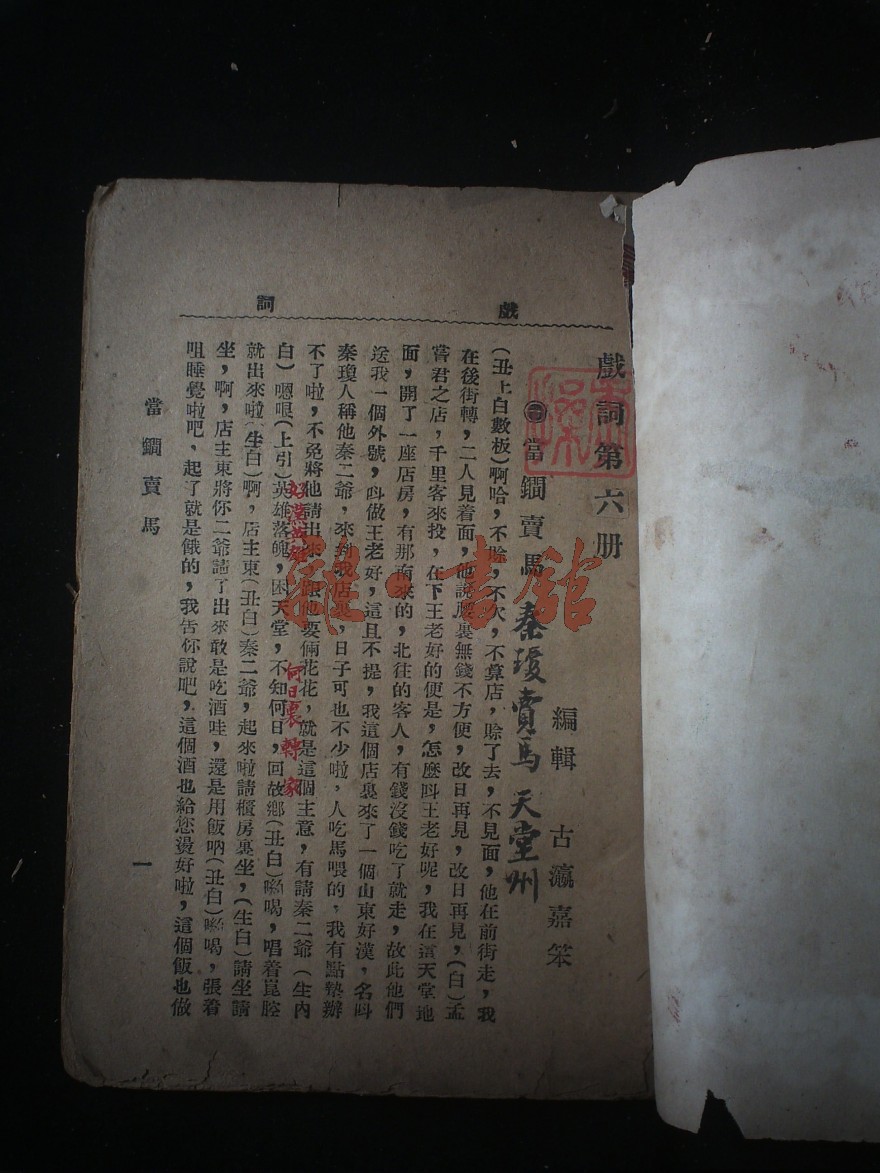 戲詞
戲詞第六册
編輯 古瀛嘉笨
當鐧賣馬
秦瓊賣馬 天堂州
(丑上白數板)啊哈,不賒,不欠,不算店,賒了去,不見面,他在前街走,我
在後街轉,二人見着面,他說腰裏無錢不方便,改日再見,改日再見,(白)孟
嘗君之店,千里客來投,在下王老好的便是,怎麽呌王老好呢,我在這天堂地
面,開了一座店房,有那南來的,北往的客人,有錢沒錢吃了就走,故此他們
送我一個外號,呌做王老好,這且不提,我這個店裏來了一個山東好漢,名呌
秦瓊人稱他秦二爺,來到我店裏,日子可也不少啦,人吃馬喂的,我有點墊辦
不了啦,不免將他請出來,跟他要倆花花,就是這個主意,有請秦二爺(生內
好漢英雄
何日裏轉家
白)嗯哏(上引)英雄落魄,困天堂,不知何日,回故鄉(丑白)喲喝,唱着崑腔
就出來啦(生白)啊,店主東(丑白)秦二爺,起來啦請櫃房裏坐,(生白)請坐請
坐,啊,店主東將你二爺請了出來敢是吃酒哇,還是用飯吶(丑白)喲喝,張着
咀睡覺啦吧,起了就是餓的,我告你說吧,這個酒也給您燙好啦,這個飯也做
當鐧賣馬
一
雜·書館